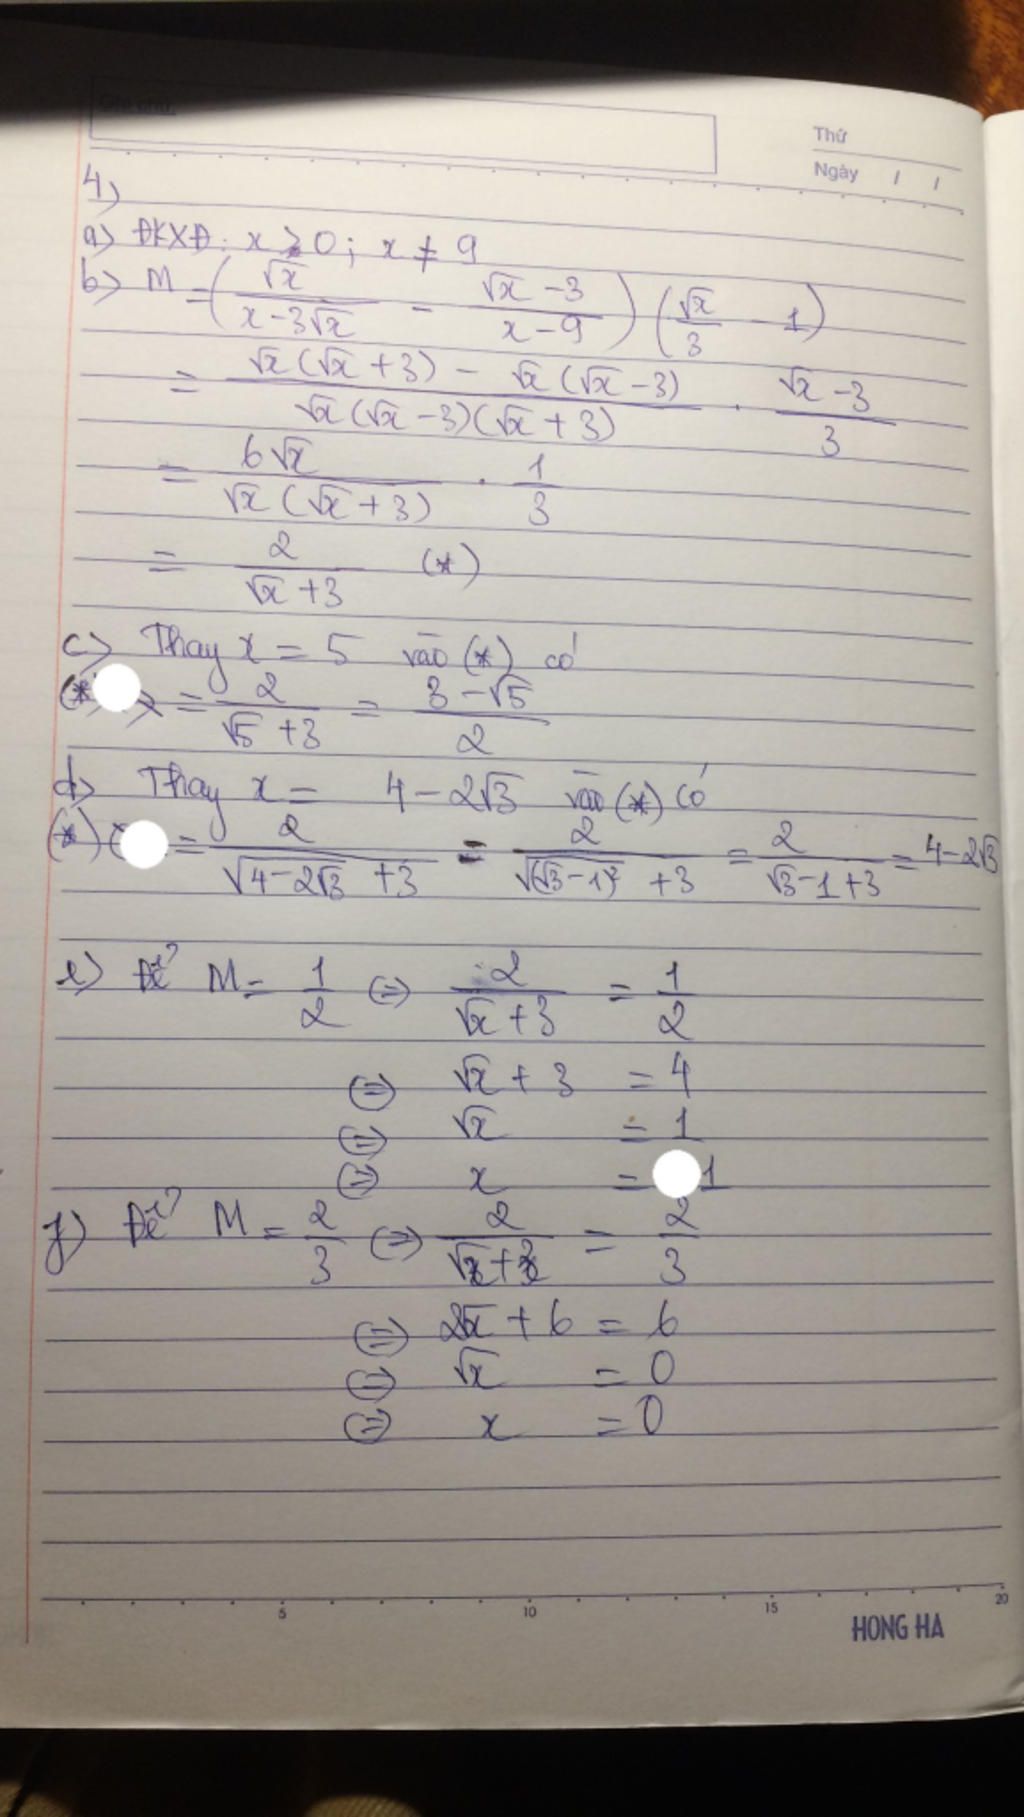 Ghi chú:
Thứ
Ngày / /
4)
a) ĐKXĐ: x ≥ 0; x ≠ 9
b) M = (√x/(x-3√x) - (√x-3)/(x-9)) (√x/3 - 1)
= (√x(√x+3) - √x(√x-3))/(√x(√x-3)(√x+3)) . (√x-3)/3
= 6√x/(√x(√x+3)) . 1/3
= 2/(√x+3) (*)
c) Thay x = 5 vào (*) có
(*) = 2/(√5+3) = (3-√5)/2
d) Thay x = 4-2√3 vào (*) có
(*) = 2/(√(4-2√3)+3) = 2/(√((√3-1)²)+3) = 2/(√3-1+3) = 4-2√3
e) Để M = 1/2 ⇔ 2/(√x+3) = 1/2
⇔ √x+3 = 4
⇔ √x = 1
⇔ x = 1
f) Để M = 2/3 ⇔ 2/(√x+3) = 2/3
⇔ 2√x + 6 = 6
⇔ √x = 0
⇔ x = 0
5 10 15 20
HONG HA